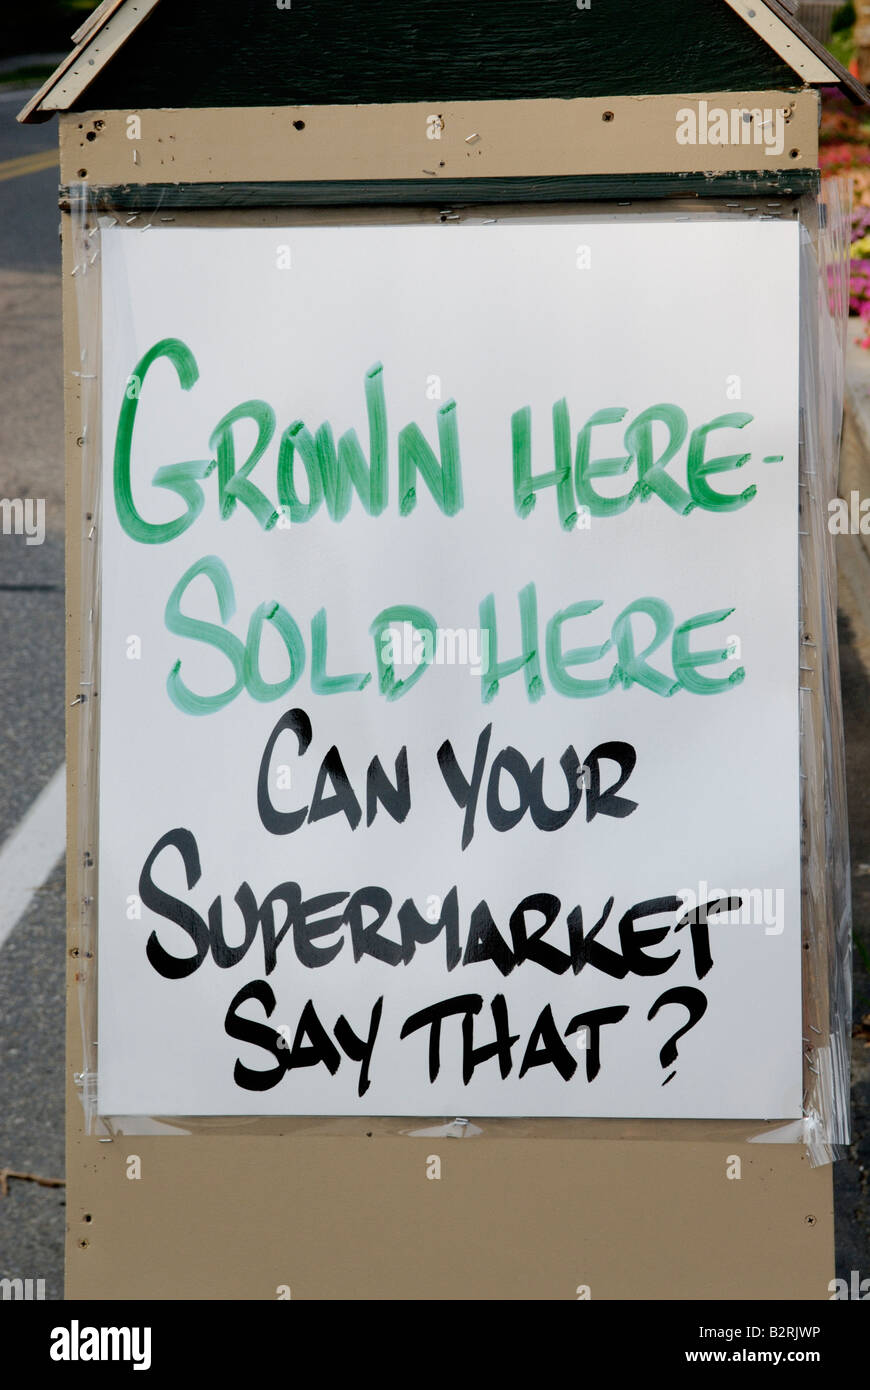 GROWN HERE-
SOLD HERE
CAN YOUR
SUPERMARKET
SAY THAT?
alamy
alamy
Image ID: B2RJWP
www.alamy.com